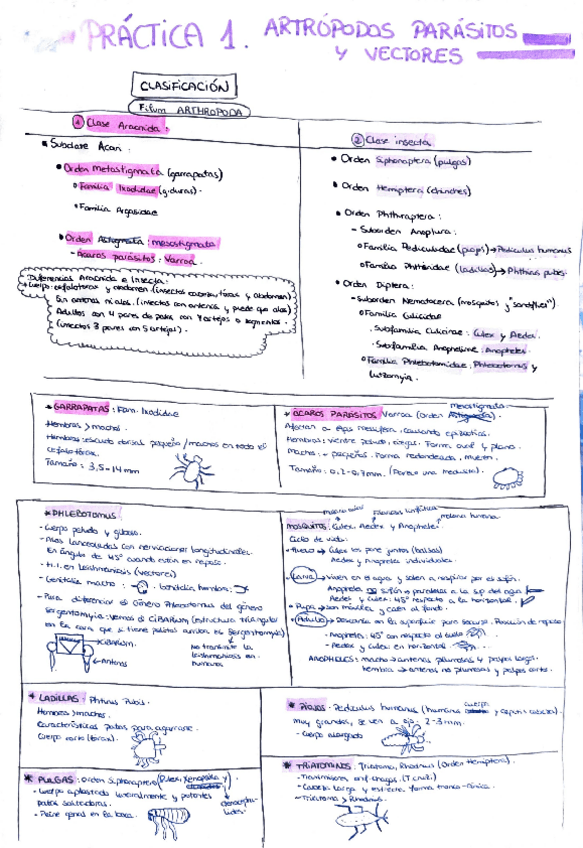 PRÁCTICA 1. ARTRÓPODOS PARÁSITOS
Y VECTORES
CLASIFICACIÓN
Filum ARTHROPODA
① Clase Aracnida:
Subclase Acari:
Orden Metastigmata (garrapatas)
Familia Ixodidae (g. duras).
Familia Argasidae
Orden Astigmata: mesostigmata
Ácaros parásitos: Varroa.
Diferencias Aracnida e Insecta:
Cuerpo: cefalotórax y abdomen (insectos cabeza, tórax y abdomen)
Sin antenas ni alas. (insectos con antenas y puede que alas)
Adultos con 4 pares de patas con artejos o segmentos.
(insectos 3 pares con 5 artejos).
② Clase insecta
Orden Siphonaptera (pulgas)
Orden Hemiptera (chinches)
Orden Phthiraptera:
- Suborden Anoplura:
Familia Pediculidae (piojos) → Pediculus humanus
Familia Phthiridae (ladillas) → Phthirus pubis.
Orden Diptera:
- Suborden Nematocera (mosquitos y "sandflies")
Familia Culicidae
Subfamilia Culicinae: Culex y Aedes.
Subfamilia Anophelinae: Anopheles.
Familia Phlebotomidae: Phlebotomus y
Lutzomyia.
* GARRAPATAS: Fam. Ixodidae
Hembras > machos.
Hembras: escudo dorsal pequeño / machos en todo el
cefalotórax.
Tamaño: 3,5-14 mm
mesostigmata
* ÁCAROS PARÁSITOS Varroa (Orden Astigmata).
Afectan a Apis mellifera, causando epizootias.
Hembras: vientre peludo, ciegas. Forma oval y plana.
Machos: - pequeños. Forma redondeada, mueren.
Tamaño: 0,2-0,7mm. (Parece una medusita).
* PHLEBOTOMUS
- Cuerpo peludo y giboso.
- Alas lanceoladas con nerviaciones longitudinales.
En ángulo de 45° cuando están en reposo.
- H.I. en Leishmaniosis (vectores)
- Genitalia macho: Genitalia hembra:
- Para diferenciar el Género Phlebotomus del género
Sergentomyia: vemos el CIBARIUM (estructura triangular
en la cara que si tiene palitos arriba es Sergentomyia)
CIBARIUM.
Antenas
No transmite la
leishmaniosis en
humanos
Filariasis linfática malaria humana
MOSQUITOS: Culex, Aedes y Anopheles.
Ciclo de vida:
- Huevo → Culex los pone juntos (balsas)
Aedes y Anopheles individuales.
- Larva → viven en el agua y salen a respirar por el sifón.
Anopheles sifón → paralelas a la sup del agua
Aedes y Culex: 45° respecto a la horizontal.
- Pupa → son móviles y caen al fondo.
- Adulto → Descansa en la superficie para secarse. Posición de reposo
- Anopheles: 45° con respecto al suelo
- Aedes y Culex en horizontal
ANOPHELES: macho → antenas plumosas y palpos largos.
hembra → antenas no plumosas y palpos cortos.
* LADILLAS. Phtirus Pubis.
Hembras > machos.
Características patas para agarrarse.
Cuerpo corto (tórax).
cuerpo
* PIOJOS. Pediculus humanus (humanus y capitis cabeza).
muy grandes, se ven a ojo. 2-3 mm.
- Cuerpo alargado
* PULGAS: Orden Siphonaptera (Pulex, Xenopsylla y
- Cuerpo aplastado lateralmente y potentes
patas saltadoras.
- Peine genal en la boca.
* TRIATOMINOS. Triatoma, Rhodnius (Orden Hemiptera).
- Transmisores enf. chagas. (T. cruzi)
- Cabeza larga y estrecha forma tronco-cónica.
- Triatoma > Rhodnius.